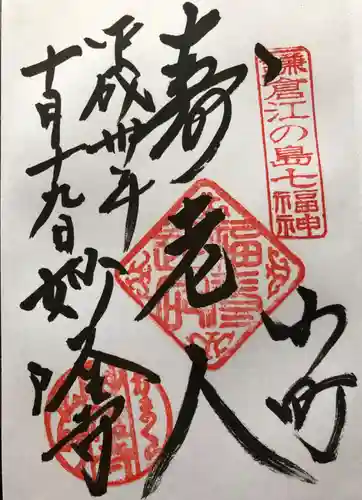 鎌倉江の島七福神
小町
寿老人
平成卅年
十一月十九日
妙隆寺